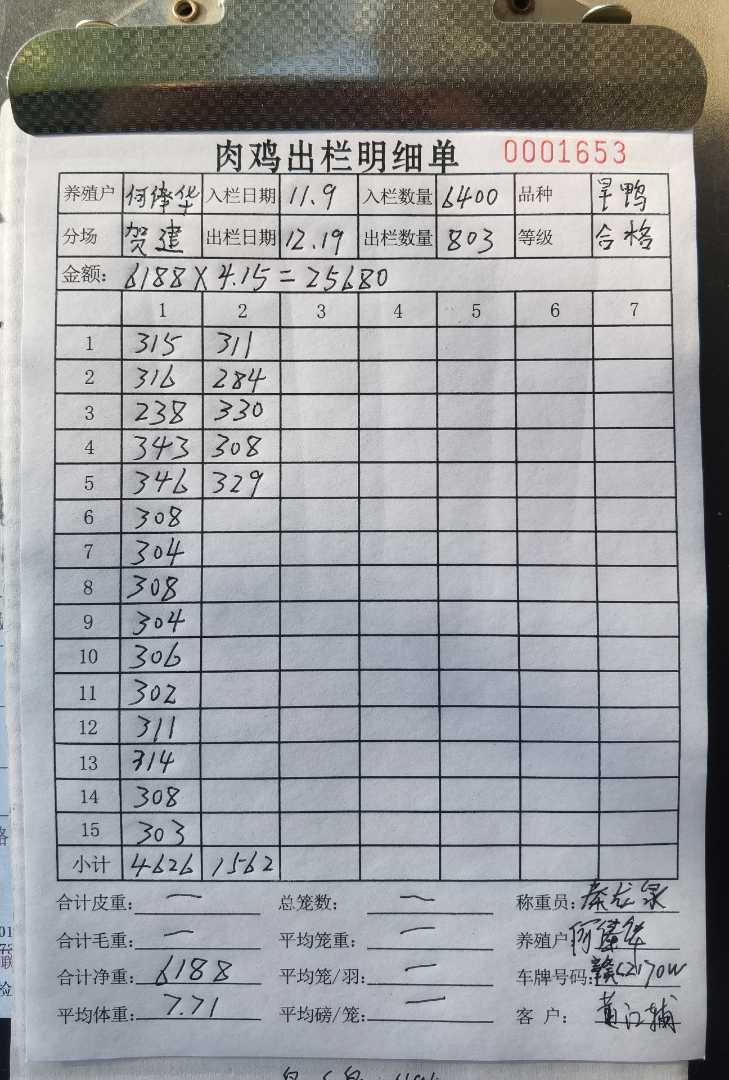 肉鸡出栏明细单 0001653
养殖户 何 华 入栏日期 11.9 入栏数量 6400 品种 旱鸭
分场 贺建 出栏日期 12.19 出栏数量 803 等级 合格
金额: 6188 X 4.15 = 25680
1 2 3 4 5 6 7
1 315 311
2 316 284
3 238 330
4 343 308
5 346 329
6 308
7 304
8 308
9 304
10 306
11 302
12 311
13 314
14 308
15 303
小计 4626 1562
合计皮重: 一 总笼数: 一 称重员: 龙泉
合计毛重: 一 平均笼重: 一 养殖户 何 华
合计净重: 6188 平均笼/羽: 一 车牌号码: 赣C2170W
平均体重: 7.71 平均磅/笼: 一 客户: 黄江辅